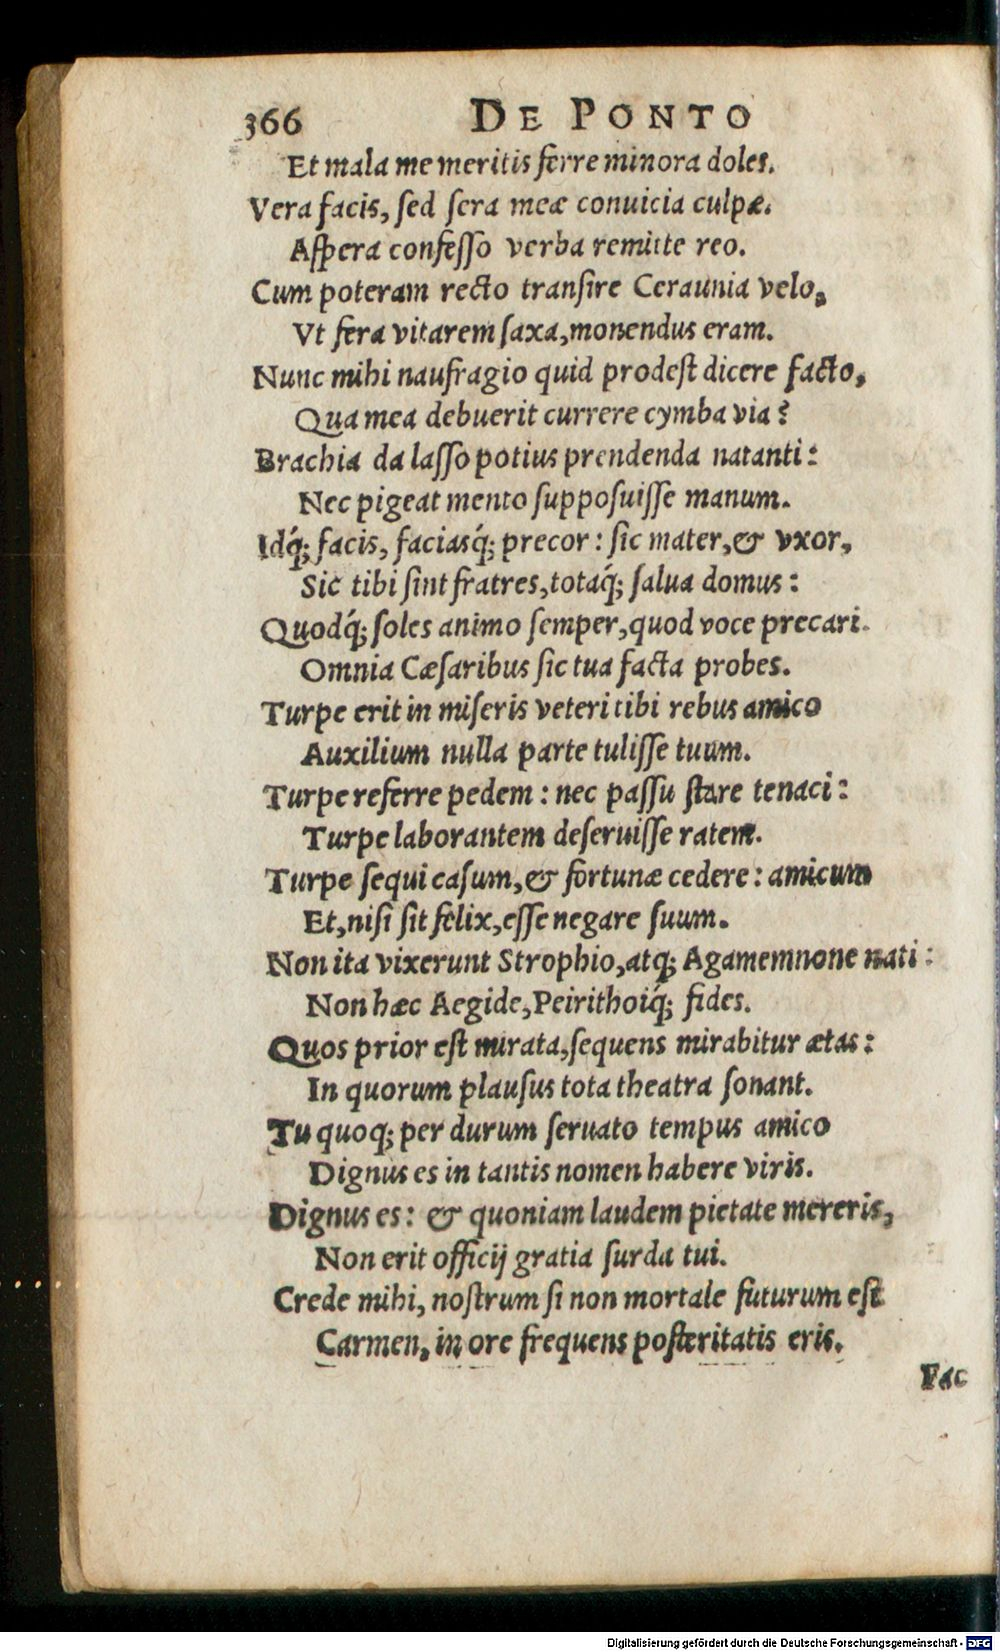 366 DE PONTO
Et mala me meritis ferre minora doles.
Vera facis, ſed ſera meæ conuicia culpæ.
Aſpera confeſſo verba remitte reo.
Cum poteram recto tranſire Ceraunia velo,
Vt fera vitarem ſaxa, monendus eram.
Nunc mihi naufragio quid prodeſt dicere facto,
Qua mea debuerit currere cymba via?
Brachia da laſſo potius prendenda natanti:
Nec pigeat mento ſuppoſuiſſe manum.
Idq́; facis, faciasq́; precor: ſic mater, & vxor,
Sic tibi ſint fratres, totaq́; ſalua domus:
Quodq́; ſoles animo ſemper, quod voce precari.
Omnia Cæſaribus ſic tua facta probes.
Turpe erit in miſeris veteri tibi rebus amico
Auxilium nulla parte tuliſſe tuum.
Turpe referre pedem: nec paſſu ſtare tenaci:
Turpe laborantem deſeruiſſe ratem.
Turpe ſequi caſum, & fortunæ cedere: amicum
Et, niſi ſit felix, eſſe negare ſuum.
Non ita vixerunt Strophio, atq; Agamemnone nati:
Non hæc Aegide, Peirithoiq́; fides.
Quos prior eſt mirata, ſequens mirabitur ætas:
In quorum plauſus tota theatra ſonant.
Tu quoq; per durum ſeruato tempus amico
Dignus es in tantis nomen habere viris.
Dignus es: & quoniam laudem pietate mereris,
Non erit officij gratia ſurda tui.
Crede mihi, noſtrum ſi non mortale futurum eſt
Carmen, in ore frequens poſteritatis eris.
Fac
Digitalisierung gefördert durch die Deutsche Forschungsgemeinschaft - DFG